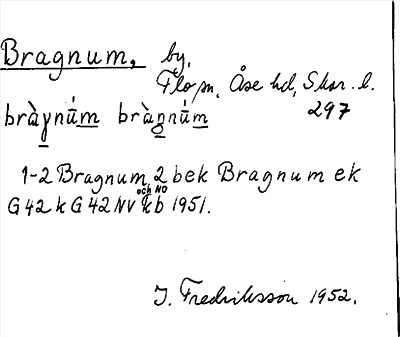 Bragnum, by,
Flo sn, Åse hd, Skar. l.
297
bràgnùm bràgnùm
1-2 Bragnum 2 bek Bragnum ek
G 42 k G 42 NV och NO k b 1951.
I. Fredriksson 1952.